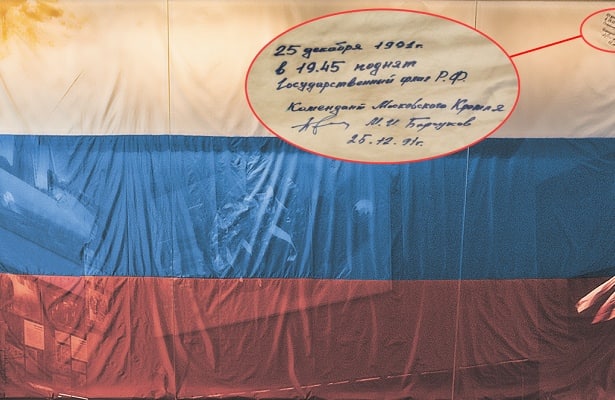 25 декабря 1991г.
в 19.45 поднят
Государственный флаг Р.Ф.
Комендант Московского Кремля
М.И. Барсуков
25.12.91г.